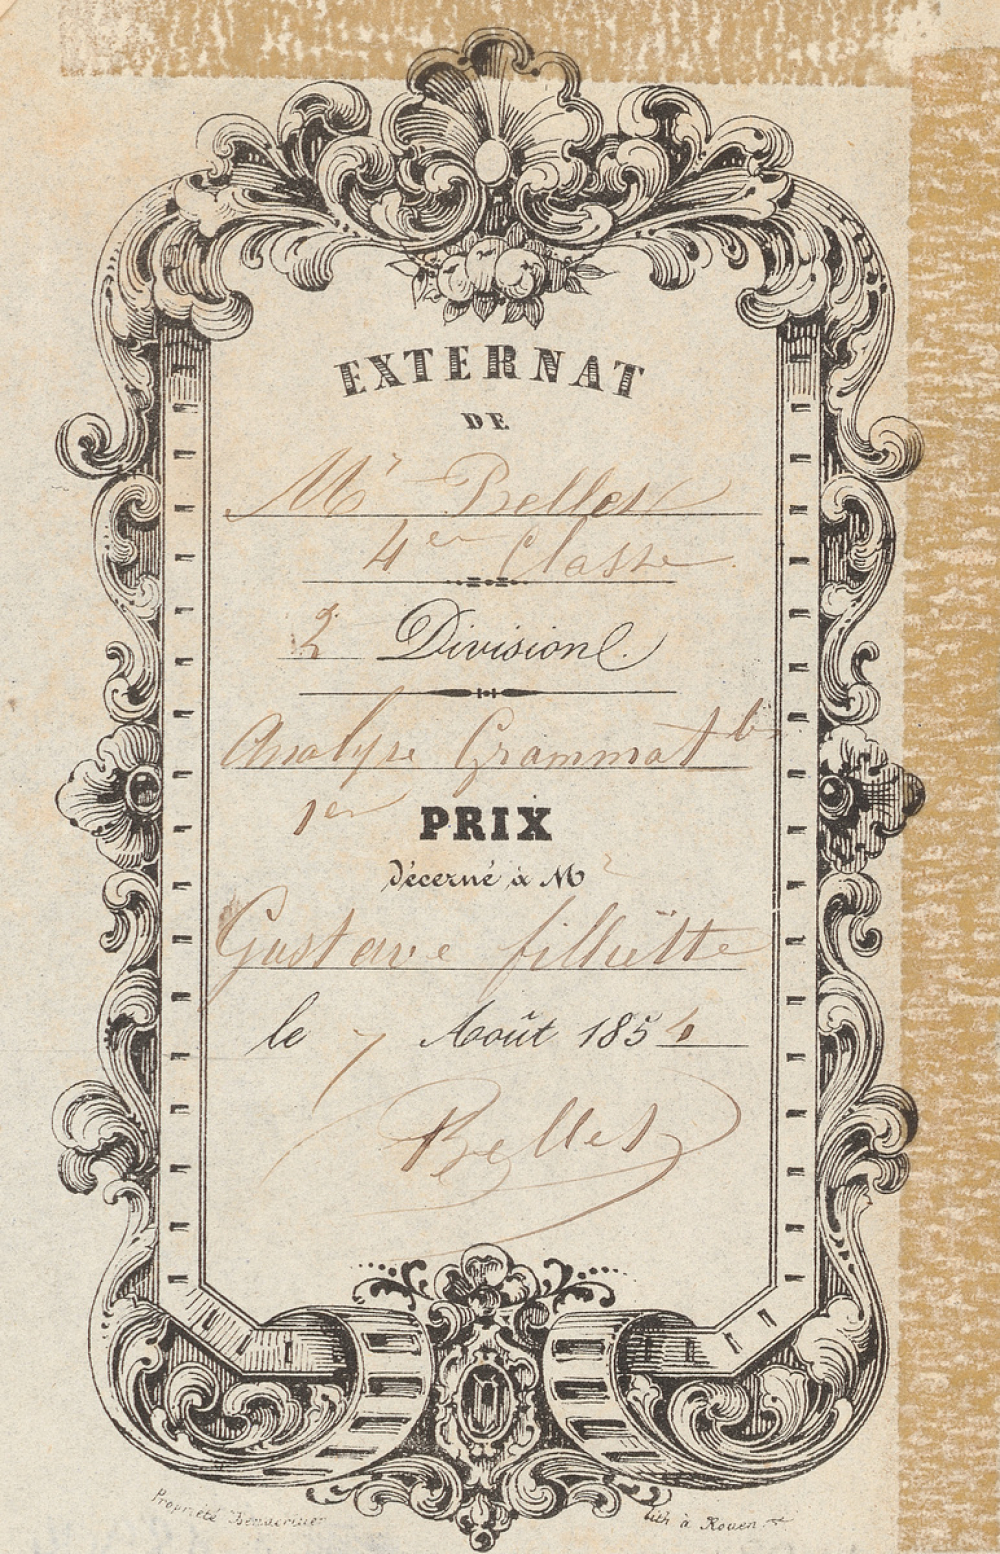 EXTERNAT
DE
Mr Bellet
4er Classe
2 Division
Analyse Grammat
1er PRIX
décerné à Mr
Gustave filluëtte
le 7 Août 1854
Bellet
Propriété
Lith à Rouen